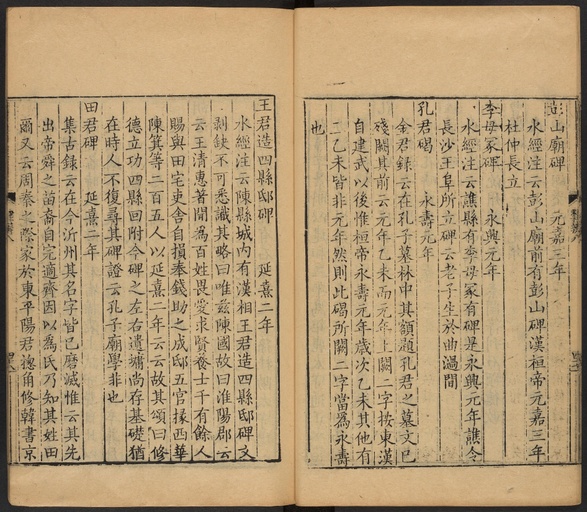 彭山廟碑　元嘉三年
水經注云彭山廟前有彭山碑漢桓帝元嘉三年
杜仲長立
李母冢碑　永興元年
水經注云譙縣有李母冢有碑是永興元年譙令
長沙王阜所立碑云老子生於曲渦間
孔君碣　永壽元年
金君錄云在孔子墓林中其額題孔君之墓文已
殘闕其前云元年乙未而元年上闕二字按東漢
自建武以後惟桓帝永壽元年歲次乙未其他有
二乙未皆非元年然則此碣所闕二字當為永壽
也
王君造四縣邸碑　延熹二年
水經注云陳縣城內有漢相王君造四縣邸碑文
剥缺不可悉識其略曰唯兹陳國故曰淮陽郡云
云王清惠著聞為百姓畏愛求賢養士千有餘人
賜與田宅吏舍自損奉錢助之成邸五官掾西華
陳騏等二百五人以延熹二年云云故其頌曰修
德立功四縣回附今碑之左右遺墉尚存基礎猶
在時人不復尋其碑證云孔子廟學非也
田君碑　延熹二年
集古錄云在今沂州其名字皆已磨滅惟云其先
出帝舜之苗裔自完適齊因以為氏乃知其姓田
爾又云周秦之際家於東平陽君總角修韓書京